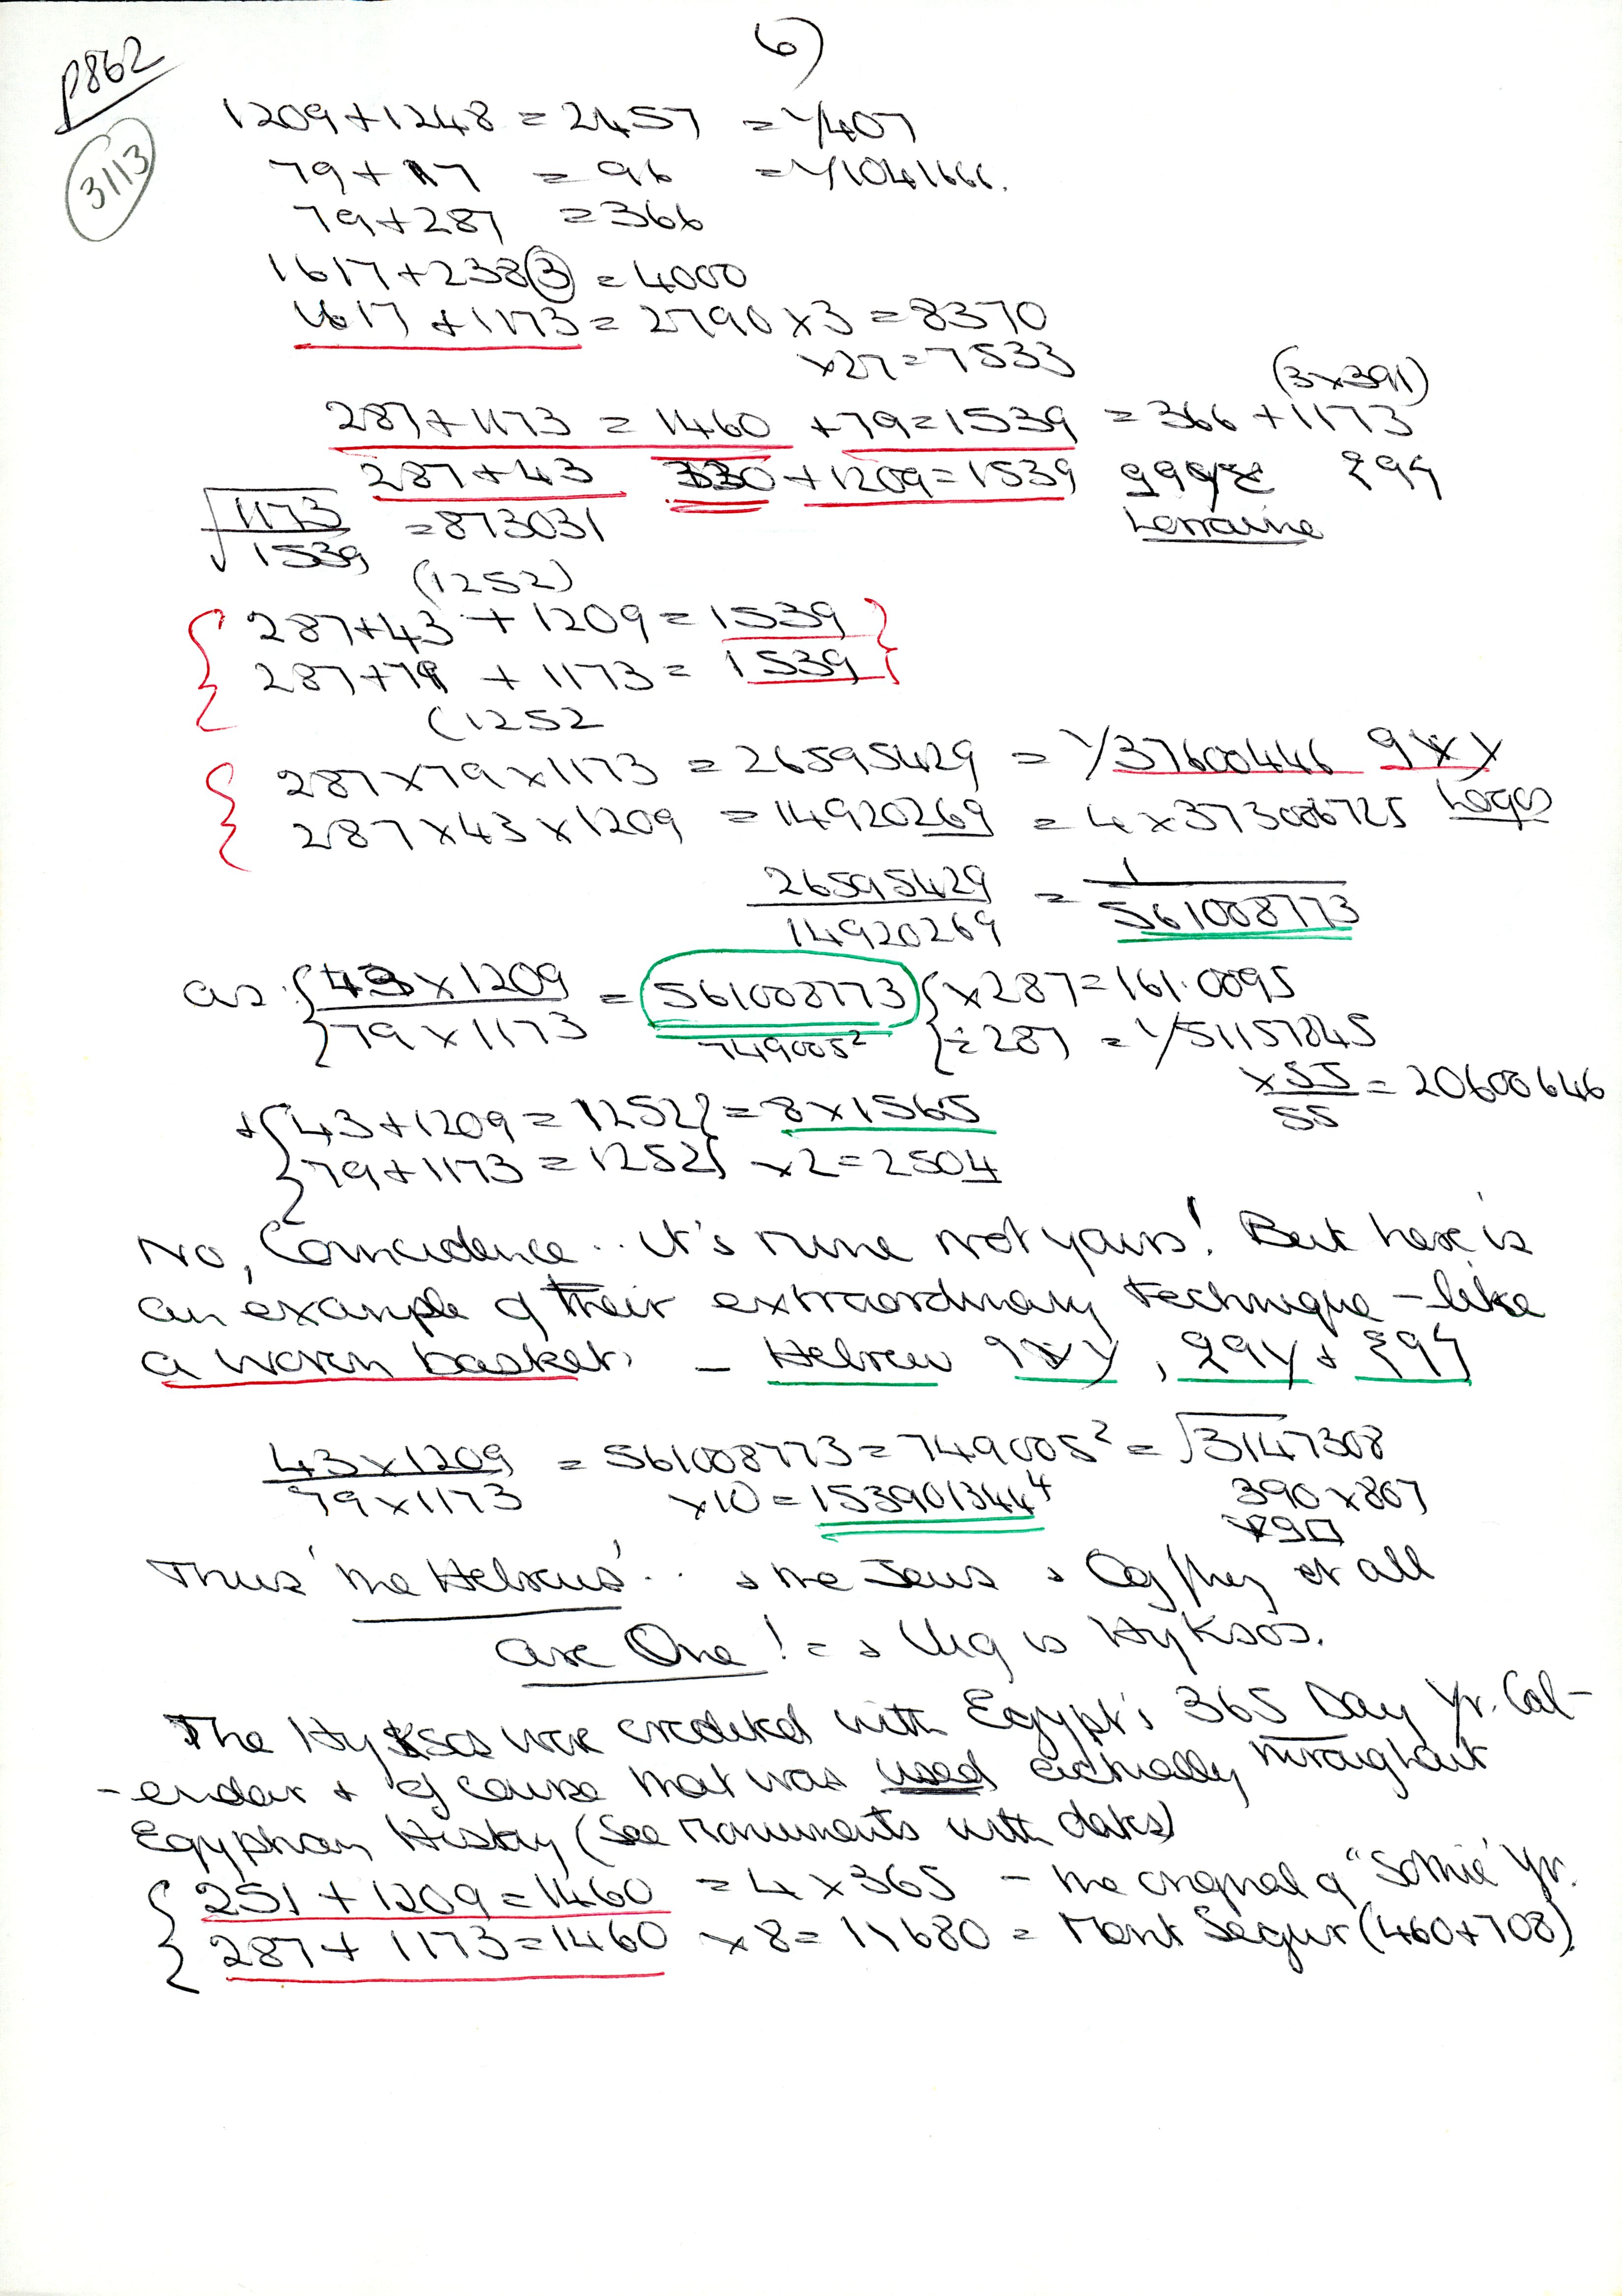 6)
P862
3113
1209+1248 = 2457 = 1/407
79+17 = 96 = 1/1041666.
79+287 = 366
1617+2383 = 4000
1617+1173 = 2790 x 3 = 8370
x27 = 7533
(3x391)
287+1173 = 1460 +79 = 1539 = 366+1173
287+43 330 +1209 = 1539
Lorraine
√1173/1539 = 873031
(1252)
287+43 + 1209 = 1539
287+79 + 1173 = 1539
(1252
287x79x1173 = 26595429 = 1/37600446
287x43x1209 = 14920269 = 4x373006725 Logos
26595429/14920269 = 1/561008773
as 43x1209/79x1173 = 561008773 x287 = 161.0095
749005² ÷287 = 1/51157845
x55/55 = 20600646
+ 43+1209 = 1252 = 8x1565
79+1173 = 1252 x2 = 2504
No, Coincidence.. it's mine not yours! But here is
an example of their extraordinary technique - like
a woven basket. - Hebrew
43x1209/79x1173 = 561008773 = 749005² = √3147308
x10 = 153901344⁴ 390x807
Thus 'the Hebrews'.. + the Jews + et all
are One! = + is Hyksos.
The Hyksos were credited with Egypt's 365 Day Yr. Cal-
-endar + of course that was used actually throughout
Egyptian History (See Monuments with dates)
251+1209 = 1460 = 4x365 - the original of "Sothic' Yr.
287+1173 = 1460 x8 = 11680 = Mont Segur (460+708).